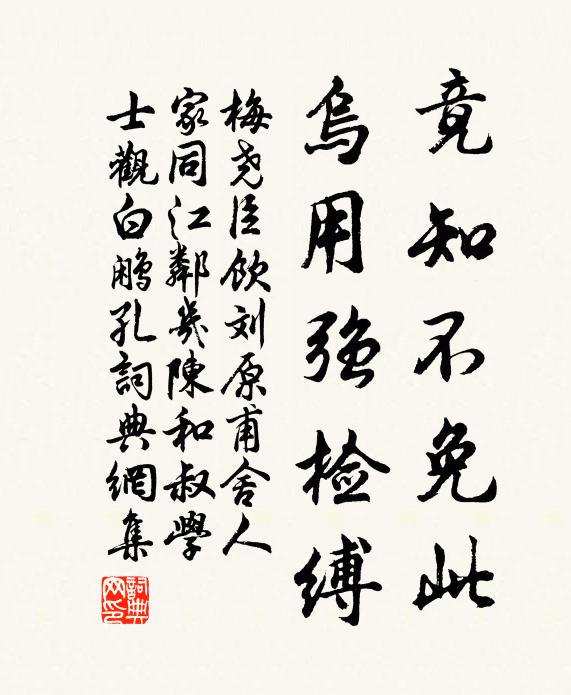 竟知不免此
烏用強檢縛
梅尧臣飲刘原甫舍人
家同江鄰幾陳和叔學
士觀白鷴孔詞典網集
詞典網印